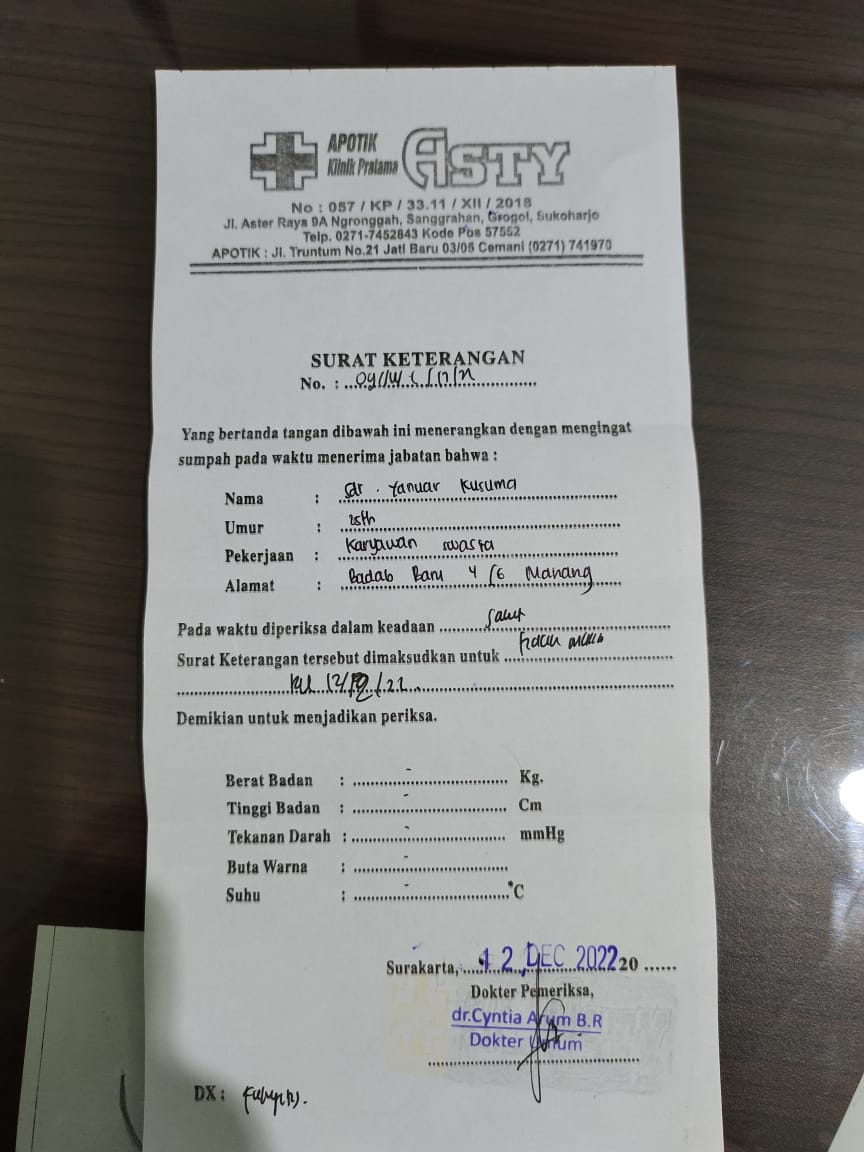 APOTIK
Klinik Pratama
ASTY
No : 057 / KP / 33.11 / XII / 2018
Jl. Aster Raya 9A Ngronggah, Sanggrahan, Grogol, Sukoharjo
Telp. 0271-7452843 Kode Pos 57552
APOTIK : Jl. Truntum No.21 Jati Baru 03/05 Cemani (0271) 741970
SURAT KETERANGAN
No. :
Yang bertanda tangan dibawah ini menerangkan dengan mengingat
sumpah pada waktu menerima jabatan bahwa :
Nama : Yanuar Kusuma
Umur : 25th
Pekerjaan : Karyawan swasta
Alamat : Badab Baru 4/6 Manang
Pada waktu diperiksa dalam keadaan sakit
Surat Keterangan tersebut dimaksudkan untuk
12/12/22
Demikian untuk menjadikan periksa.
Berat Badan : - Kg.
Tinggi Badan : - Cm
Tekanan Darah : - mmHg
Buta Warna : -
Suhu : - °C
Surakarta, 12 DEC 2022 20 ......
Dokter Pemeriksa,
dr.Cyntia Arum B.R
Dokter Umum
DX :